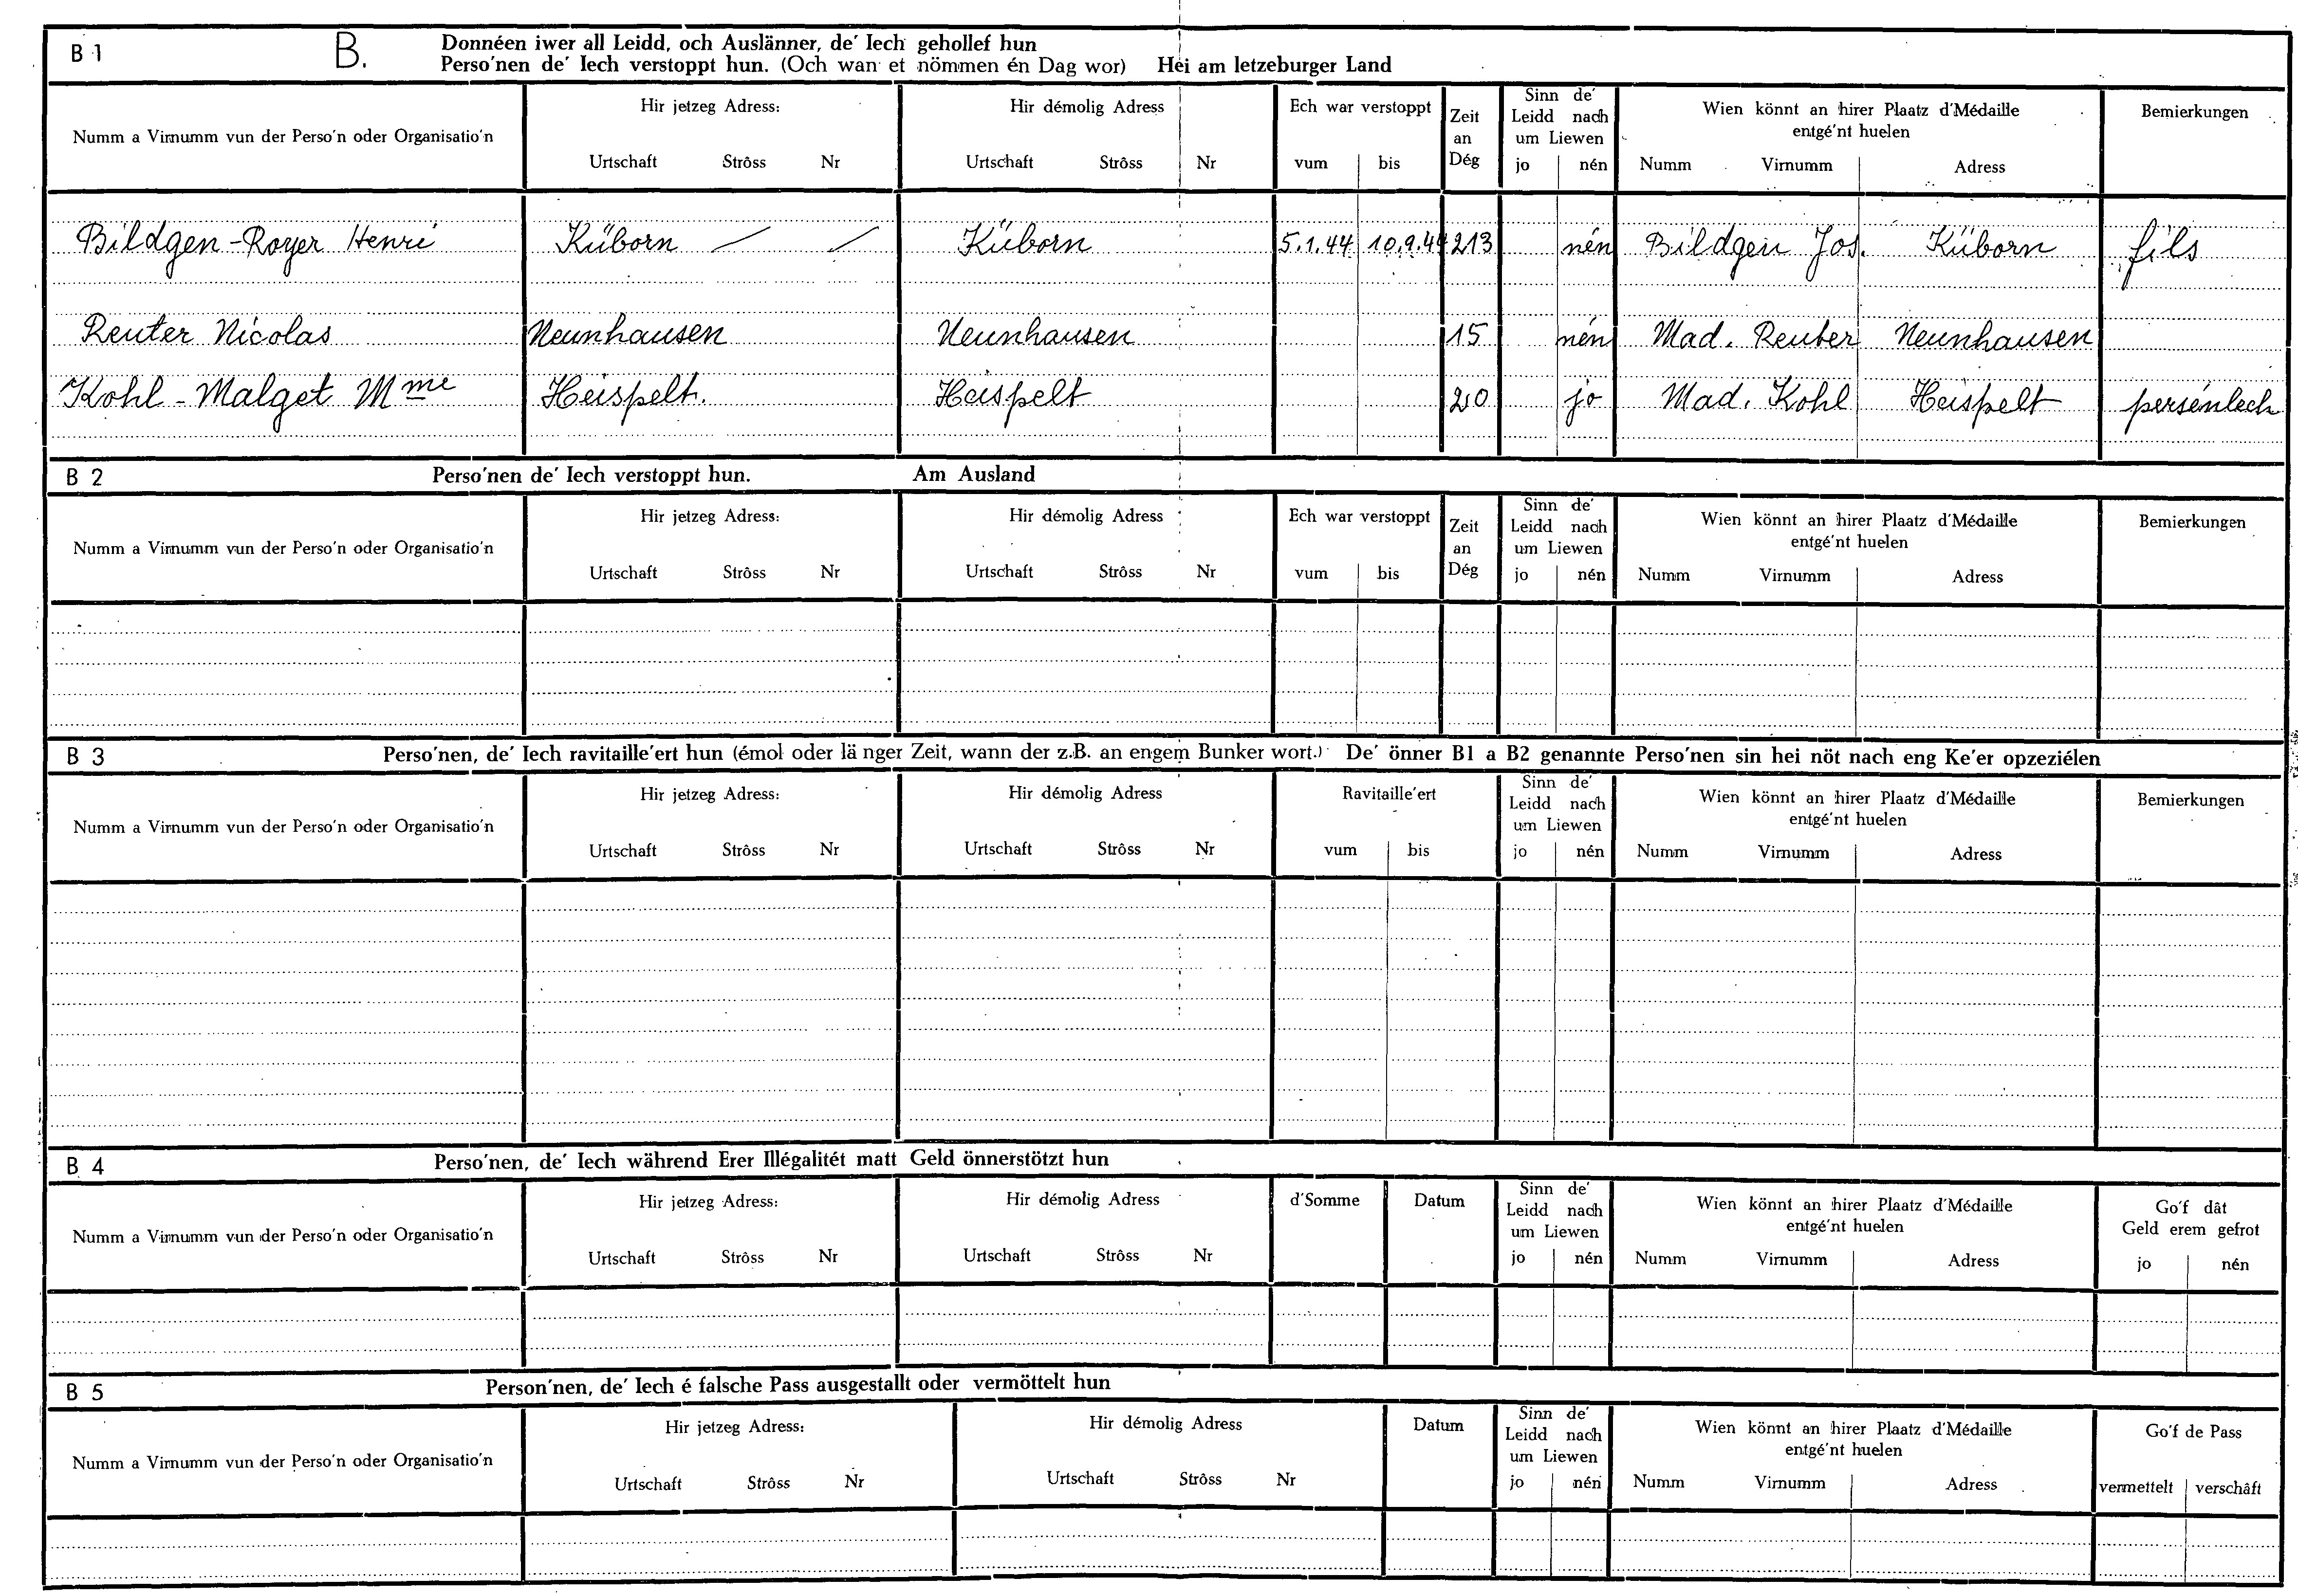 B 1 B. Donnéen iwer all Leidd, och Auslänner, de' Iech gehollef hun
Perso'nen de' Iech verstoppt hun. (Och wan et nömmen én Dag wor) Hei am letzeburger Land
Numm a Virnumm vun der Perso'n oder Organisatio'n
Hir jetzeg Adress:
Urtschaft Strôss Nr
Hir démolig Adress
Urtschaft Strôss Nr
Ech war verstoppt
vum bis
Zeit
an
Dég
Sinn de'
Leidd nach
um Liewen
jo nén
Wien könnt an hirer Plaatz d'Médaille
entgé'nt huelen
Numm Virnumm Adress
Bemierkungen
Bildgen-Royer Henri Küborn Küborn 5.1.44 10.9.44 213 nén Bildgen Jos. Küborn fils
Reuter Nicolas Neunhausen Neunhausen 15 nén Mad. Reuter Neunhausen
Kohl-Malget Mme Heispelt. Heispelt 20 jo Mad. Kohl Heispelt persénlech
B 2 Perso'nen de' Iech verstoppt hun. Am Ausland
Numm a Virnumm vun der Perso'n oder Organisatio'n
Hir jetzeg Adress:
Urtschaft Strôss Nr
Hir démolig Adress
Urtschaft Strôss Nr
Ech war verstoppt
vum bis
Zeit
an
Dég
Sinn de'
Leidd nach
um Liewen
jo nén
Wien könnt an hirer Plaatz d'Médaille
entgé'nt huelen
Numm Virnumm Adress
Bemierkungen
B 3 Perso'nen, de' Iech ravitaille'ert hun (émol oder länger Zeit, wann der z.B. an engem Bunker wort.) De' önner B1 a B2 genannte Perso'nen sin hei nöt nach eng Ke'er opzeziélen
Numm a Virnumm vun der Perso'n oder Organisatio'n
Hir jetzeg Adress:
Urtschaft Strôss Nr
Hir démolig Adress
Urtschaft Strôss Nr
Ravitaille'ert
vum bis
Sinn de'
Leidd nach
um Liewen
jo nén
Wien könnt an hirer Plaatz d'Médaille
entgé'nt huelen
Numm Virnumm Adress
Bemierkungen
B 4 Perso'nen, de' Iech während Erer Illégalitét matt Geld önnerstötzt hun
Numm a Virnumm vun der Perso'n oder Organisatio'n
Hir jetzeg Adress:
Urtschaft Strôss Nr
Hir démolig Adress
Urtschaft Strôss Nr
d'Somme
Datum
Sinn de'
Leidd nach
um Liewen
jo nén
Wien könnt an hirer Plaatz d'Médaille
entgé'nt huelen
Numm Virnumm Adress
Go'f dât
Geld erem gefrot
jo nén
B 5 Person'nen, de' Iech é falsche Pass ausgestallt oder vermöttelt hun
Numm a Virnumm vun der Perso'n oder Organisatio'n
Hir jetzeg Adress:
Urtschaft Strôss Nr
Hir démolig Adress
Urtschaft Strôss Nr
Datum
Sinn de'
Leidd nach
um Liewen
jo nén
Wien könnt an hirer Plaatz d'Médaille
entgé'nt huelen
Numm Virnumm Adress
Go'f de Pass
vermettelt verschâft